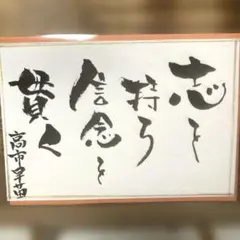 志を
持ち
信念を
貫く
高市早苗